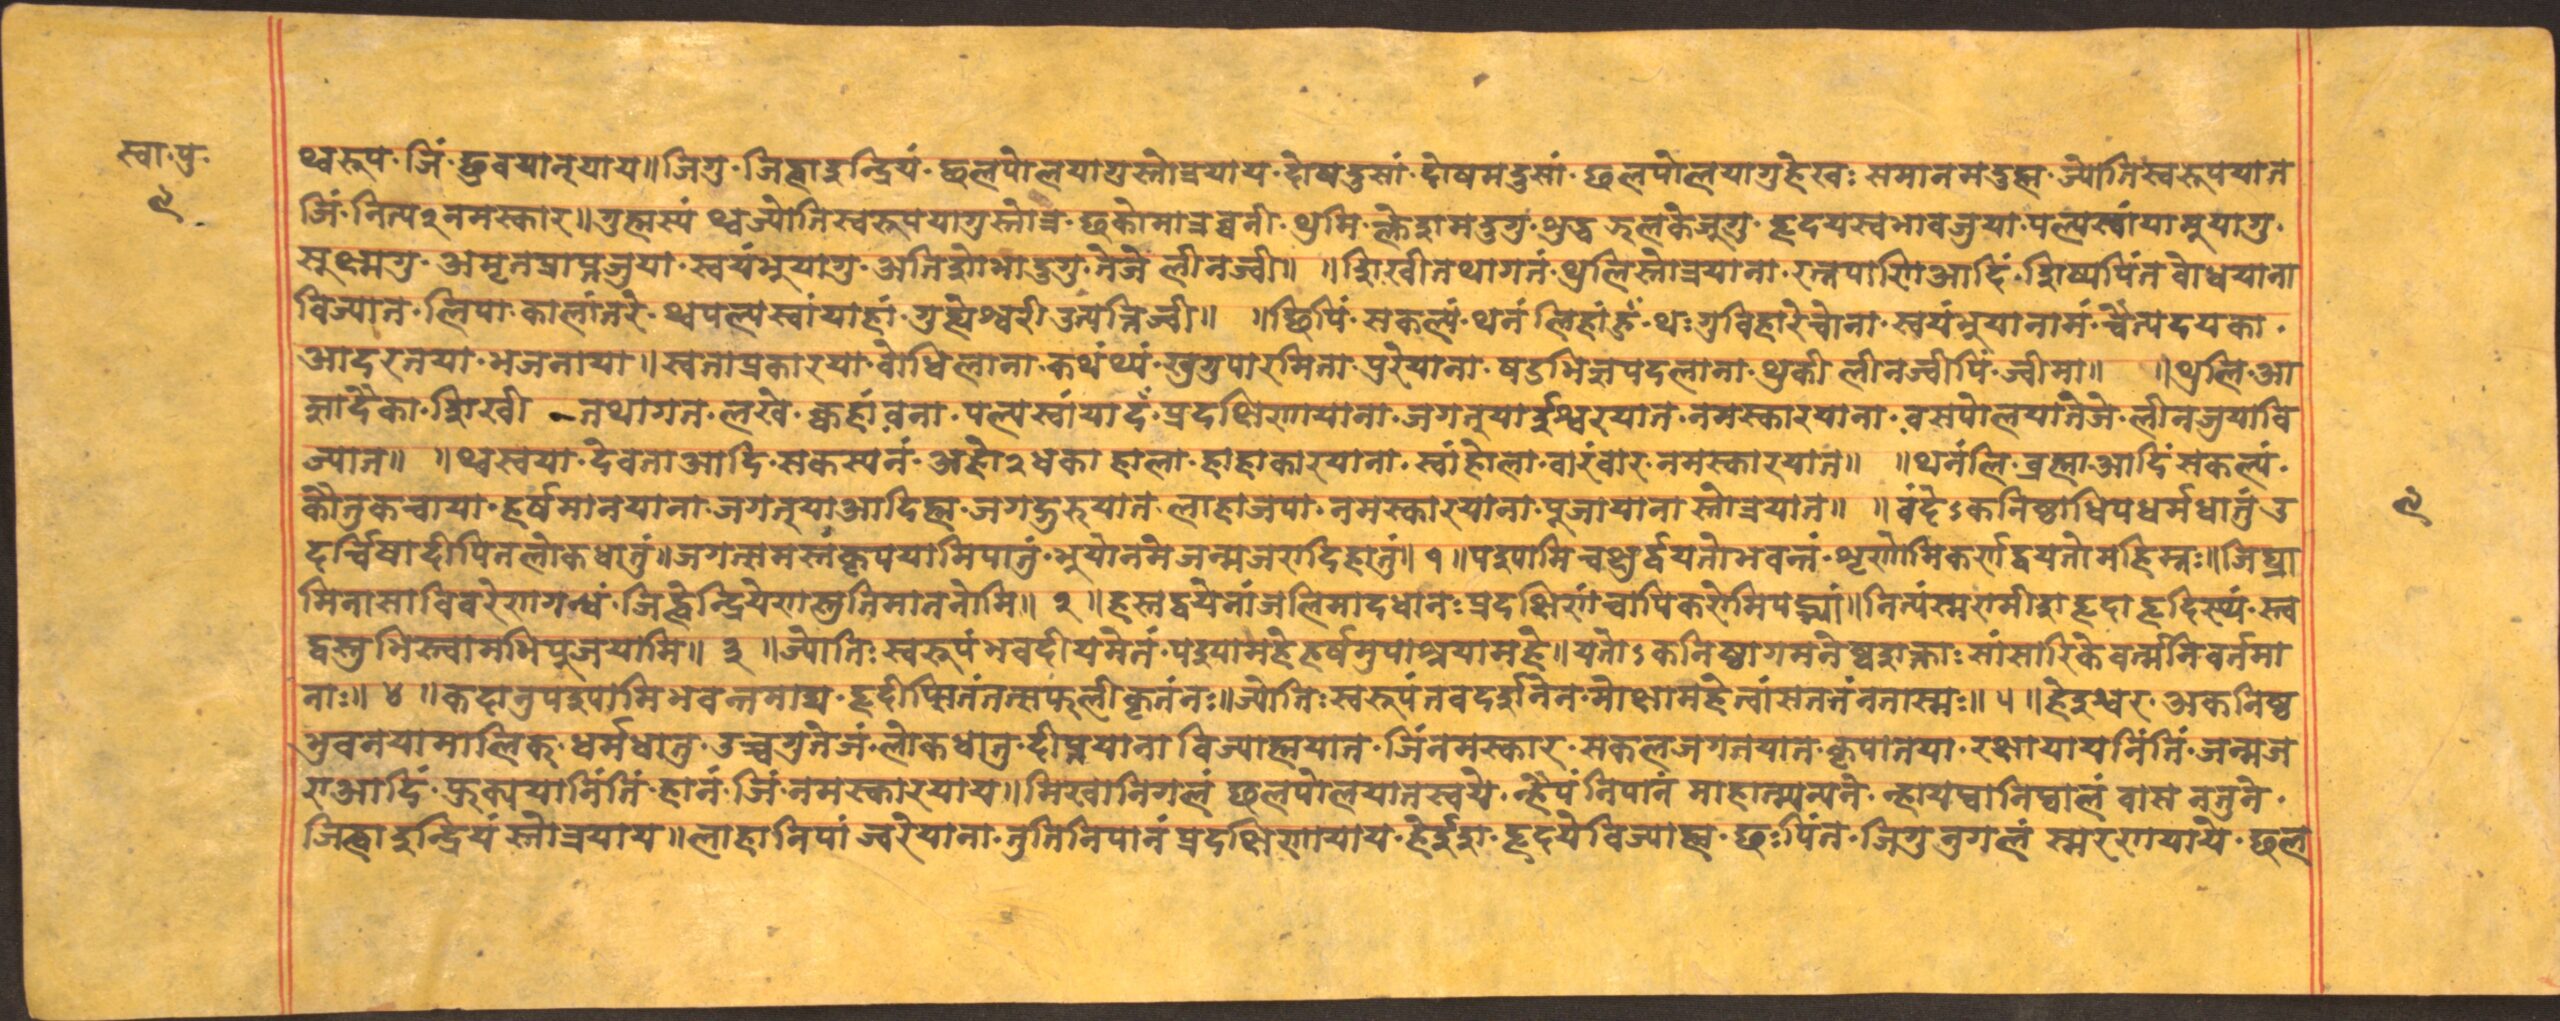 स्वा.पु.
९
थ्वरूप. जिं. छुवयानुयाय॥ जिगु. जिह्वाइन्द्रियं. छलपोलयागुस्तोत्रयाय. दोषदुसां. दोषमदुसां. छलपोलयागुहेखः समानमदुह्म. ज्योतिस्वरूपयात
जिं. नित्य२नमस्कार॥ गुह्मस्यं थ्वज्योतिस्वरूपयागुस्तोत्र. छकोमात्रब्वनी. थुमि. क्लेशमदुगु. शुद्ध जुलकेजुगु. हृदयस्वभावजुया. पल्यस्वांयामुयागु.
सूक्ष्मगु. अमृतप्राप्तजुया. स्वयंभुयागु. अतिशोभादुगु. तेजे लीनज्वी॥ ॥शिखीतथागतं. थुलिस्तोत्रयाना. रत्नपाणिआदिं. शिष्यपिंत बोधयाना
विज्यात. लिपा. कालांतरे. थ्वपल्यस्वांयाहां. गुह्येश्वरी उत्पत्तिज्वी॥ ॥छिपिं. सकल्यं. थनं लिहांहुँ. थःगुविहारेचोना. स्वयंभुयानामं. चैत्यदयका.
आदरनया. भजनायाय॥ स्वताप्रकारया. बोधिलाना. कथंथ्यं. खुगुपारमिता. पुरेयाना. षडभिज्ञपदलाना. थुकी लीनज्वीपिं. ज्वीमा॥ ॥थुलि. आ
ज्ञादेका. शिखी तथागत. लखे. क्वहांवना. पल्यस्वांयादँ. प्रदक्षिणायाना. जगत्‌याईश्वरयात. नमस्कारयाना. वसपोलयातेजे. लीनजुयावि
ज्यात॥ ॥थ्वस्वया. देवताआदि. सकस्यनं. अहो२धका हाला. हाहाकारयाना. स्वांहोला. वारंवार. नमस्कारयात॥ ॥थनंलि. ब्रह्माआदिं सकल्यं.
कौतुकचाया. हर्षमानयाना. जगत्‌याआदिह्म. जगद्गुरुयात. लाहाजपा. नमस्कारयाना. पुजायाना स्तोत्रयात॥ ॥वंदेऽकनिष्ठाधिपधर्मधातुं उ
दर्च्चिषादीपितलोकधातुं॥ जगत्समस्तं कृपयाभिपातुं. भूयोनमे जन्मजरादिहातुं॥ १ ॥ पश्यामि चक्षुर्द्वयतोभवन्तं. शृणोमिकर्णद्वयतोमहिम्नः॥ जिघ्रा
मिनासाविवरेणगन्धं. जिह्वेन्द्रियेणस्तुतिमातनोमि॥ २ ॥ हस्तद्वयेनांजलिमादधानः प्रदक्षिणंचापिकरोमिपद्भ्यां॥ नित्यंस्मरामीशहृदाहृदिस्थं. स्त्व
द्वस्तुभिस्त्वामभिपूजयामि॥ ३ ॥ ज्योतिःस्वरूपंभवदीयमेतं. पश्यामहेहर्षमुपाश्रयामहे॥ यतोऽकनिष्ठागमनेष्वशक्ताः सांसारिकेवर्त्मनिवर्तमा
नाः॥ ४ ॥ कदानुपश्यामिभवन्तमाद्य. हृदीप्सितंतत्सफुलीकृतंनः॥ ज्योतिःस्वरूपंतवदर्शनेन. मोक्षामहेत्वांसततंनतास्मः॥ ५ ॥ हेईश्वर. अकनिष्ठ
भुवनयामालिक. धर्मधातु. उच्चगुतेजं. लोकधातु. दीप्तयाना विज्याह्मयात. जिंनमस्कार. सकलजगतयात. कृपातया. रक्षायायनिंतिं. जन्मज
राआदिं. फुक्ययानिंतिं. हानं. जिं. नमस्कारयाय॥ मिखानिगलं छलपोलयातस्वये. न्हेपंनिपानं माहात्म्यन्यने. न्हायप्वानिप्वालं वास नतुने.
जिह्वाइन्द्रियं स्तोत्रयाय॥ लाहानिपां ज्वरेयाना. तुतिनिपानं प्रदक्षिणायाय. हेईश. हृदयेविज्याह्म. छःपिंत. जिगु नुगलं स्मरणयाये. छल
९